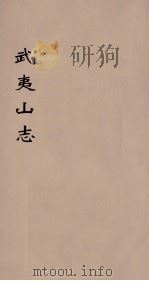 武夷山志
mtoou.info